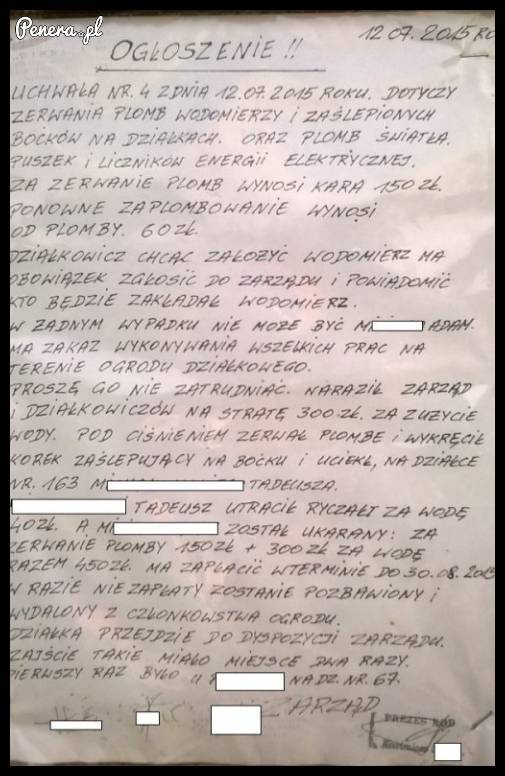 Penera.pl
12 07. 2015 RO
OGŁOSZENIE !!
UCHWAŁA NR. 4 Z DNIA 12.07.2015 ROKU. DOTYCZY
ZERWANIA PLOMB WODOMIERZY I ZAŚLEPIONYCH
BOĆKÓW NA DZIAŁKACH. ORAZ PLOMB ŚWIATŁA.
PUSZEK I LICZNIKÓW ENERGII ELEKTRYCZNEJ.
ZA ZERWANIE PLOMB WYNOSI KARA 150 ZŁ.
PONOWNE ZAPLOMBOWANIE WYNOSI
OD PLOMBY. 60 ZŁ.
DZIAŁKOWICZ CHCĄC ZAŁOŻYĆ WODOMIERZ MA
OBOWIĄZEK ZGŁOSIĆ DO ZARZĄDU I POWIADOMIĆ
KTO BĘDZIE ZAKŁADAŁ WODOMIERZ.
W ŻADNYM WYPADKU NIE MOŻE BYĆ M ADAM.
MA ZAKAZ WYKONYWANIA WSZELKICH PRAC NA
TERENIE OGRODU DZIAŁKOWEGO.
PROSZĘ GO NIE ZATRUDNIAĆ. NARAZIŁ ZARZĄD
I DZIAŁKOWICZÓW NA STRATĘ 300 ZŁ. ZA ZUŻYCIE
WODY. POD CIŚNIENIEM ZERWAŁ PLOMBE I WYKRĘCIŁ
KOREK ZAŚLEPUJĄCY NA BOĆKU I UCIEKŁ, NA DZIAŁCE
NR. 163 M TADEUSZA.
TADEUSZ UTRACIŁ RYCZAŁT ZA WODĘ
40 ZŁ. A M ZOSTAŁ UKARANY: ZA
ZERWANIE PLOMBY 150 ZŁ + 300 ZŁ ZA WODĘ
RAZEM 450 ZŁ. MA ZAPŁACIĆ W TERMINIE DO 30.08.2015
W RAZIE NIEZAPŁATY ZOSTANIE POZBAWIONY I
WYDALONY Z CZŁONKOWSTWA OGRODU.
DZIAŁKA PRZEJDZIE DO DYSPOZYCJI ZARZĄDU.
ZAJŚCIE TAKIE MIAŁO MIEJSCE DWA RAZY.
PIERWSZY RAZ BYŁO U NA DZ. NR. 67.
ZARZĄD
PREZES ROD